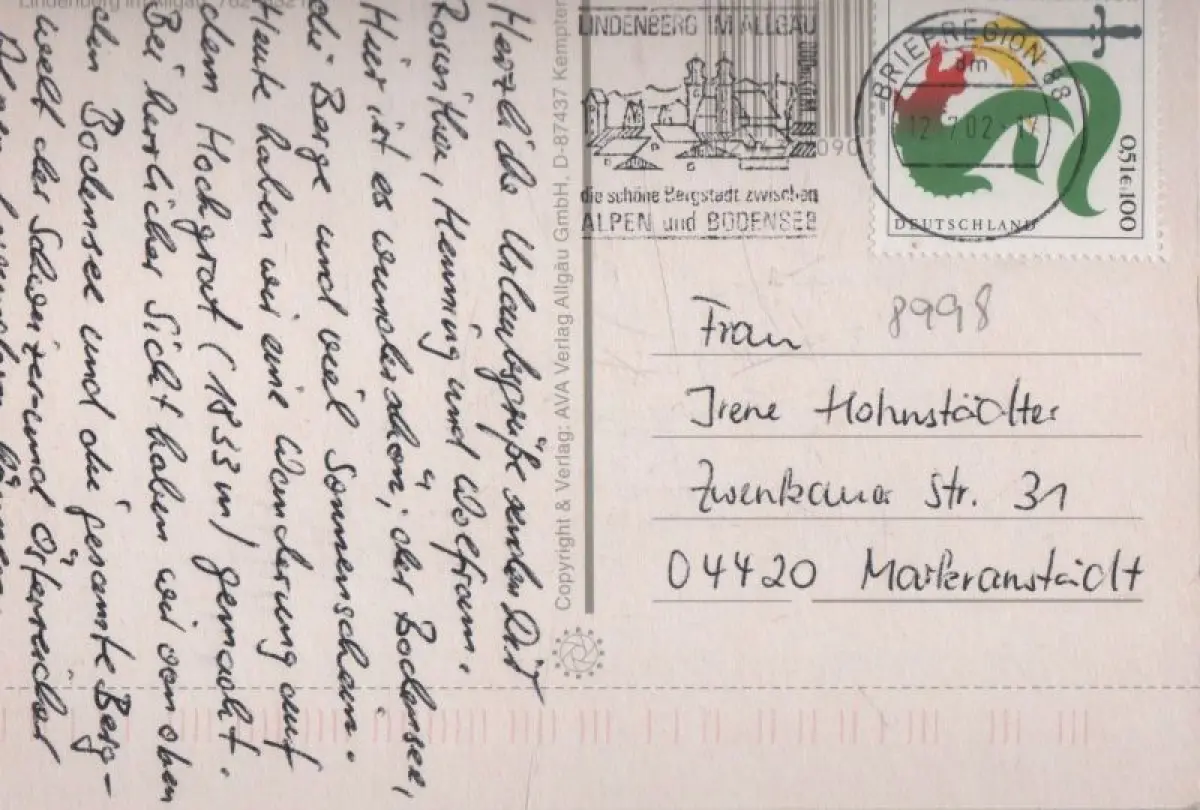 Herzliche Urlaubsgrüße senden Dir
Roswitha, Henning und Wolfram.
Hier ist es wunderschön, der Bodensee,
die Berge und viel Sonnenschein.
Heute haben wir eine Wanderung auf
dem Hochgrat (1833 m) gemacht.
Bei herrlicher Sicht haben wir von oben
den Bodensee und die gesamte Berg-
welt der Schweizer und Österreicher
Copyright & Verlag: AVA Verlag Allgäu GmbH, D-87437 Kempten
LINDENBERG IM ALLGÄU
die schöne Bergstadt zwischen
ALPEN und BODENSEE
BRIEFREGION 88
12.7.02
DEUTSCHLAND
0,51€ 100
8998
Frau
Irene Hohnstädter
Zwenkauer Str. 31
04420 Markranstädt